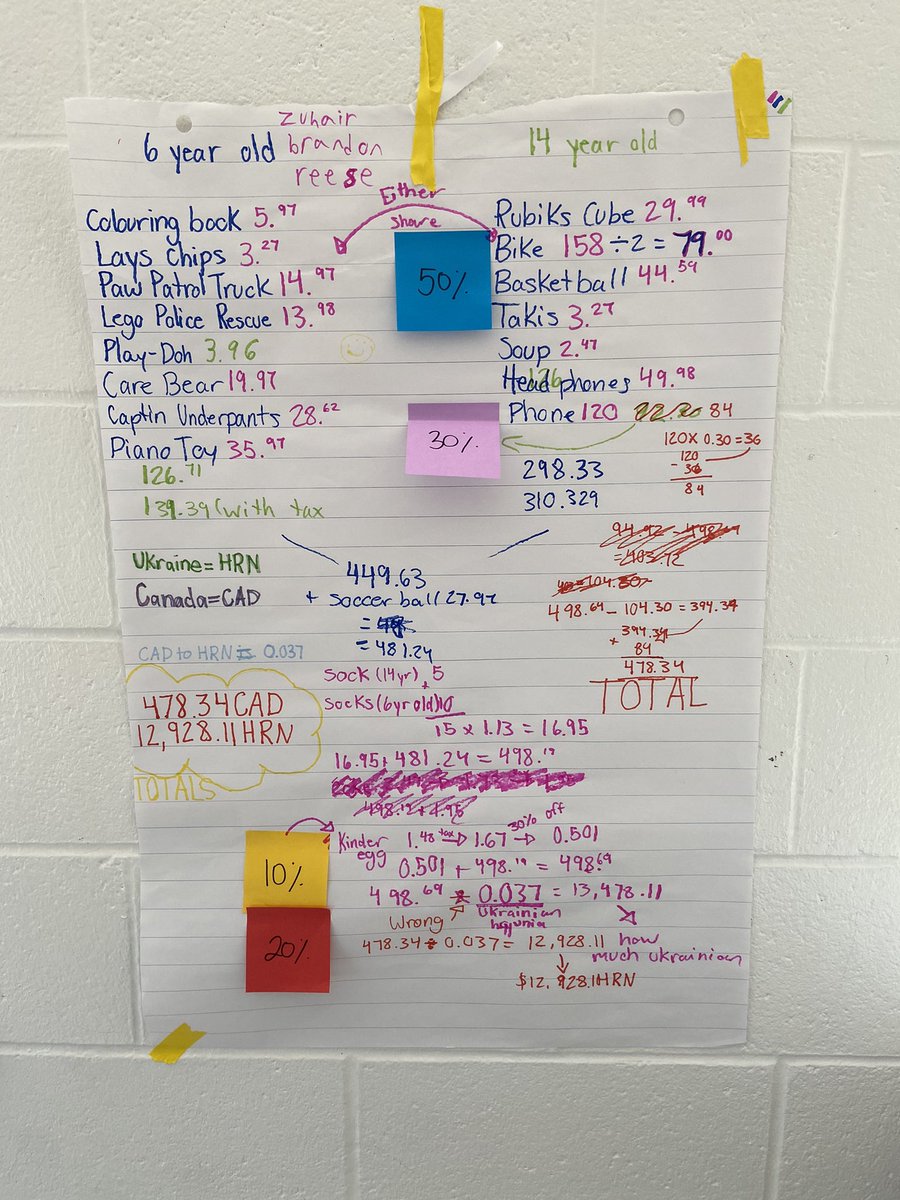 zuhair
6 year old brandon
reese
14 year old
Either
share
50%
Colouring book 5.97
Lays chips 3.27
Paw Patrol Truck 14.97
Lego Police Rescue 13.98
Play-Doh 3.96
Care Bear 19.97
Captin Underpants 28.62
Piano Toy 35.97
126.71
139.39 (with tax
Rubiks Cube 29.99
Bike 158 ÷ 2 = 79.00
Basketball 44.59
Takis 3.27
Soup 2.47
Headphones 49.98
Phone 120 84
30%
120 x 0.30 = 36
120
- 36
84
298.33
310.329
Ukraine = HRN
Canada = CAD
CAD to HRN is 0.037
478.34 CAD
12,928.11 HRN
TOTALS
449.63
+ soccer ball 27.97
= 481.24
498.64 - 104.30 = 394.34
+ 394.34
84
478.34
TOTAL
sock (14yr) 5
+
socks (6yr old) 10
15 x 1.13 = 16.95
16.95 + 481.24 = 498.19
10%
20%
Kinder egg 1.48 tax → 1.67 30% off → 0.501
0.501 + 498.19 = 498.69
498.69 ÷ 0.037 = 13,478.11
Wrong
Ukrainian
how much Ukrainian
478.34 ÷ 0.037 = 12,928.11
$12,928.11HRN